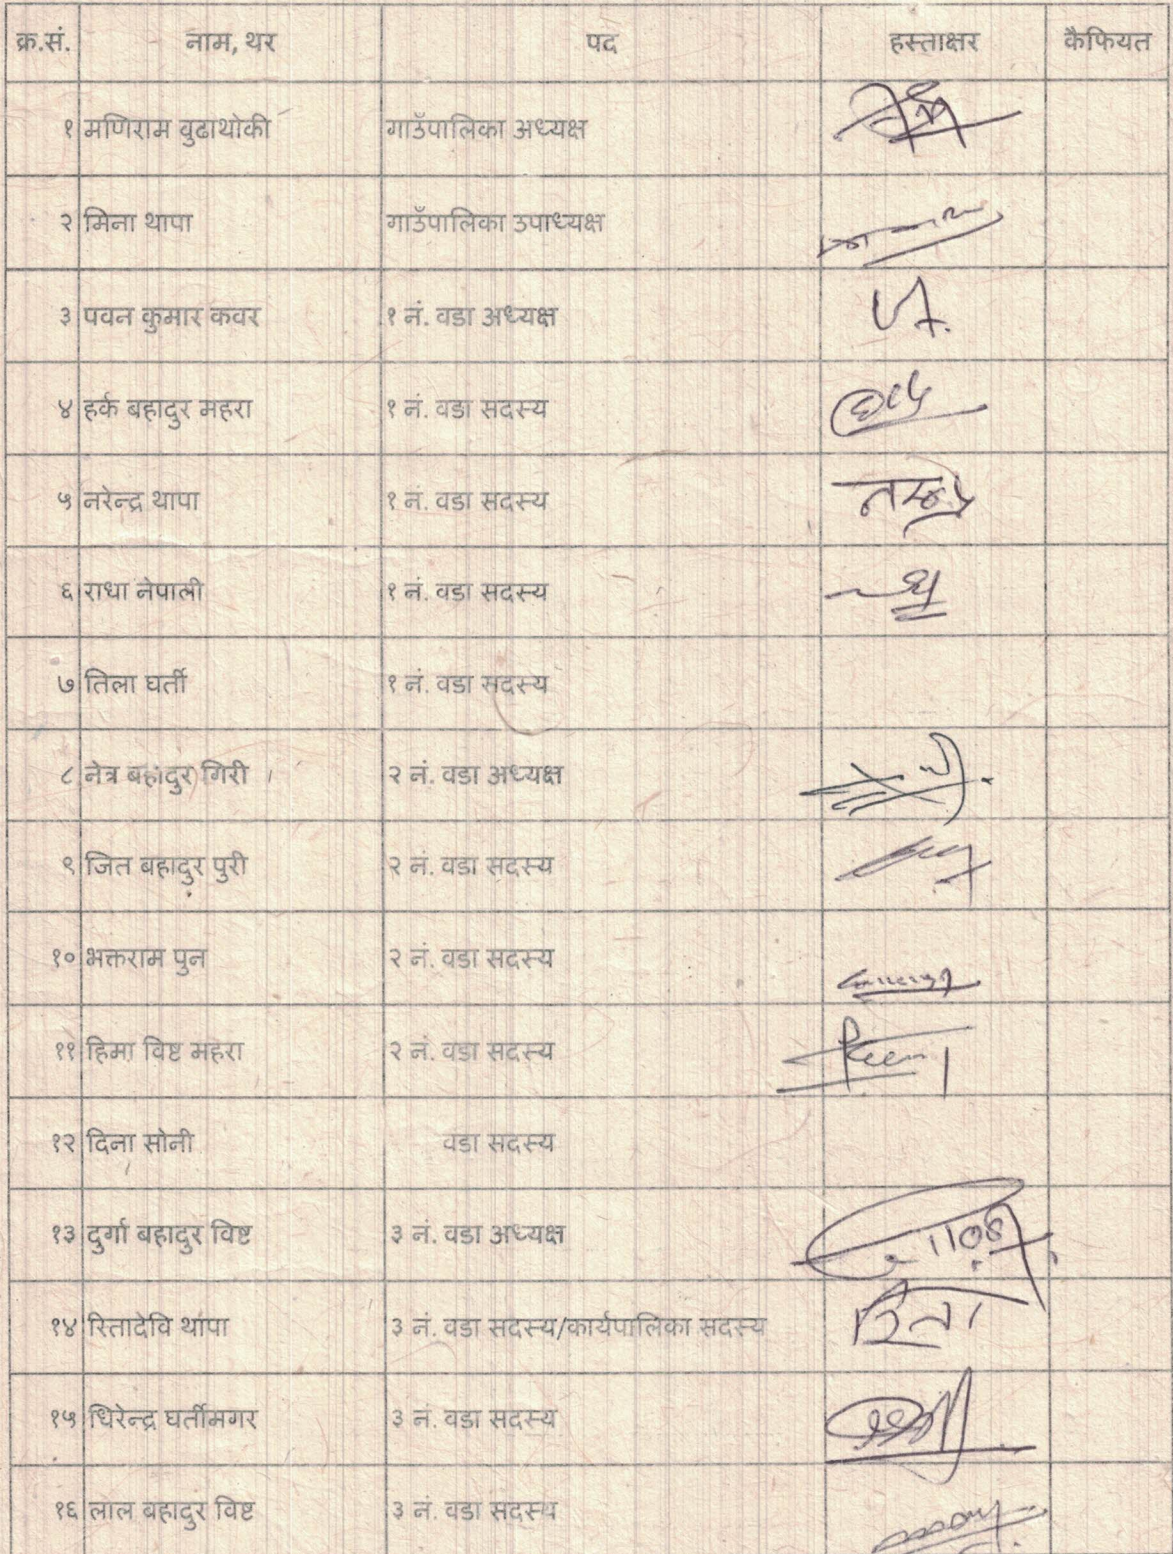 क्र.सं. नाम, थर पद हस्ताक्षर कैफियत
१ मणिराम वुढाथोकी गाउँपालिका अध्यक्ष
२ मिना थापा गाउँपालिका उपाध्यक्ष
३ पवन कुमार कवर १ नं. वडा अध्यक्ष
४ हर्क बहादुर महरा १ नं. वडा सदस्य
५ नरेन्द्र थापा १ नं. वडा सदस्य
६ राधा नेपाली १ नं. वडा सदस्य
७ तिला घर्ती १ नं. वडा सदस्य
८ नेत्र बहादुर गिरी २ नं. वडा अध्यक्ष
९ जित बहादुर पुरी २ नं. वडा सदस्य
१० भक्तराम पुन २ नं. वडा सदस्य
११ हिमा विष्ट महरा २ नं. वडा सदस्य
१२ दिना सोनी वडा सदस्य
१३ दुर्गा बहादुर विष्ट ३ नं. वडा अध्यक्ष
१४ रितादेवि थापा ३ नं. वडा सदस्य/कार्यपालिका सदस्य रिता
१५ धिरेन्द्र घर्तीमगर ३ नं. वडा सदस्य
१६ लाल बहादुर विष्ट ३ नं. वडा सदस्य